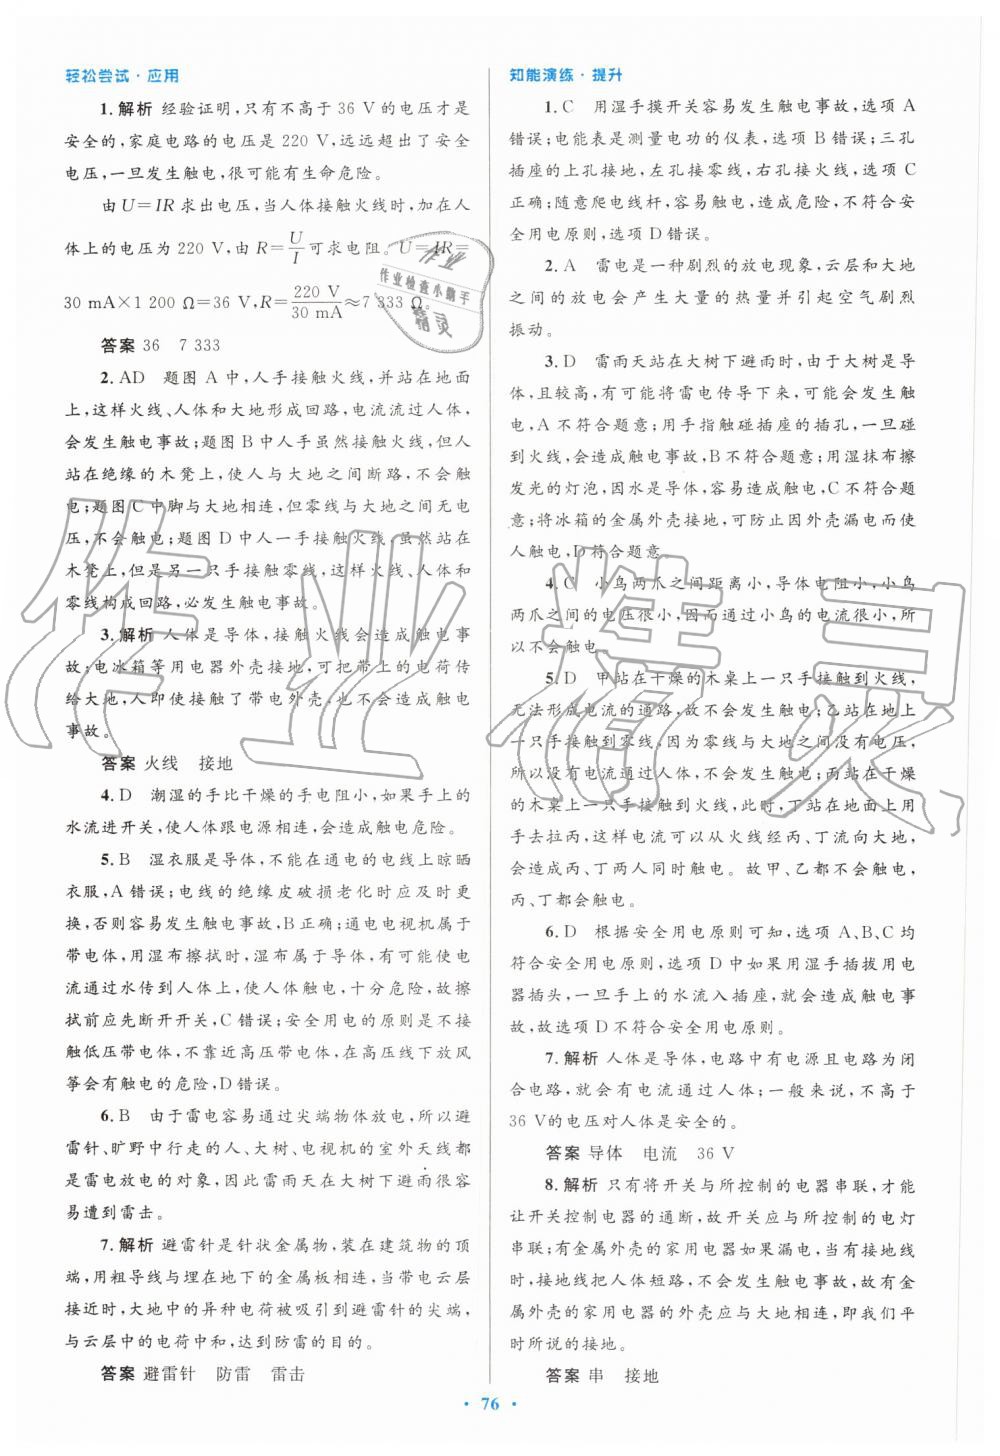 轻松尝试·应用
1.解析 经验证明,只有不高于 36 V 的电压才是
安全的,家庭电路的电压是 220 V,远远超出了安全
电压,一旦发生触电,很可能有生命危险。
由 U=IR 求出电压,当人体接触火线时,加在人
体上的电压为 220 V,由 R=U/I可求电阻。U=IR=
30 mA×1 200 Ω=36 V,R=220 V/30 mA≈7 333 Ω。
答案 36 7 333
2. AD 题图 A 中,人手接触火线,并站在地面
上,这样火线、人体和大地形成回路,电流流过人体,
会发生触电事故;题图 B 中人手虽然接触火线,但人
站在绝缘的木凳上,使人与大地之间断路,不会触
电;题图 C 中脚与大地相连,但零线与大地之间无电
压,不会触电;题图 D 中人一手接触火线,虽然站在
木凳上,但是另一只手接触零线,火线、人体和
零线构成回路,必发生触电事故。
3.解析 人体是导体,接触火线会造成触电事
故;电冰箱等用电器外壳接地,可把带上的电荷传
给大地,人即使接触了带电外壳,也不会造成触电
事故。
答案 火线 接地
4. D 潮湿的手比干燥的手电阻小,如果手上的
水流进开关,使人体跟电源相连,会造成触电危险。
5. B 湿衣服是导体,不能在通电的电线上晾晒
衣服,A 错误;电线的绝缘皮破损老化时应及时更
换,否则容易发生触电事故,B 正确;通电电视机属于
带电体,用湿布擦拭时,湿布属于导体,可能使电
流通过水传到人体上,使人体触电,十分危险,故擦
拭前应先断开开关,C 错误;安全用电的原则是不接
触低压带电体,不靠近高压带电体,在高压线下放风
筝会有触电的危险,D 错误。
6. B 由于雷电容易通过尖端物体放电,所以避
雷针、旷野中行走的人、大树、电视机的室外天线都
是雷电放电的对象,因此雷雨天在大树下避雨很容
易遭到雷击。
7.解析 避雷针是针状金属物,装在建筑物的顶
端,用粗导线与埋在地下的金属板相连,当带电云层
接近时,大地中的异种电荷被吸引到避雷针的尖端,
与云层中的电荷中和,达到防雷的目的。
答案 避雷针 防雷 雷击
知能演练·提升
1. C 用湿手摸开关容易发生触电事故,选项 A
错误;电能表是测量电功的仪表,选项 B 错误;三孔
插座的上孔接地,左孔接零线,右孔接火线,选项 C
正确;随意爬电线杆,容易触电,造成危险,不符合安
全用电原则,选项 D 错误。
2. A 雷电是一种剧烈的放电现象,云层和大地
之间的放电会产生大量的热量并引起空气剧烈
振动。
3. D 雷雨天站在大树下避雨时,由于大树是导
体,且较高,有可能将雷电传导下来,可能会发生触
电,A 不符合题意;用手指触碰插座的插孔,一旦碰
到火线,会造成触电事故,B 不符合题意;用湿抹布擦
发光的灯泡,因水是导体,容易造成触电,C 不符合题
意;将冰箱的金属外壳接地,可防止因外壳漏电而使
人触电,D 符合题意。
4. C 小鸟两爪之间距离小,导体电阻小,小鸟
两爪之间的电压很小,因而通过小鸟的电流很小,所
以不会触电。
5. D 甲站在干燥的木桌上一只手接触到火线,
无法形成电流的通路,故不会发生触电;乙站在地上
一只手接触到零线,因为零线与大地之间没有电压,
所以没有电流通过人体,不会发生触电;丙站在干燥
的木桌上一只手接触到火线,此时,丁站在地面上用
手去拉丙,这样电流可以从火线经丙、丁流向大地,
会造成丙、丁两人同时触电。故甲、乙都不会触电,
丙、丁都会触电。
6. D 根据安全用电原则可知,选项 A、B、C 均
符合安全用电原则,选项 D 中如果用湿手插拔用电
器插头,一旦手上的水流入插座,就会造成触电事
故,故选项 D 不符合安全用电原则。
7.解析 人体是导体,电路中有电源且电路为闭
合电路,就会有电流通过人体;一般来说,不高于
36 V的电压对人体是安全的。
答案 导体 电流 36 V
8.解析 只有将开关与所控制的电器串联,才能
让开关控制电器的通断,故开关应与所控制的电灯
串联;有金属外壳的家用电器如果漏电,当有接地线
时,接地线把人体短路,不会发生触电事故,故有金
属外壳的家用电器的外壳应与大地相连,即我们平
时所说的接地。
答案 串 接地
· 76 ·
作业
作业检查小助手
精灵
作业精灵